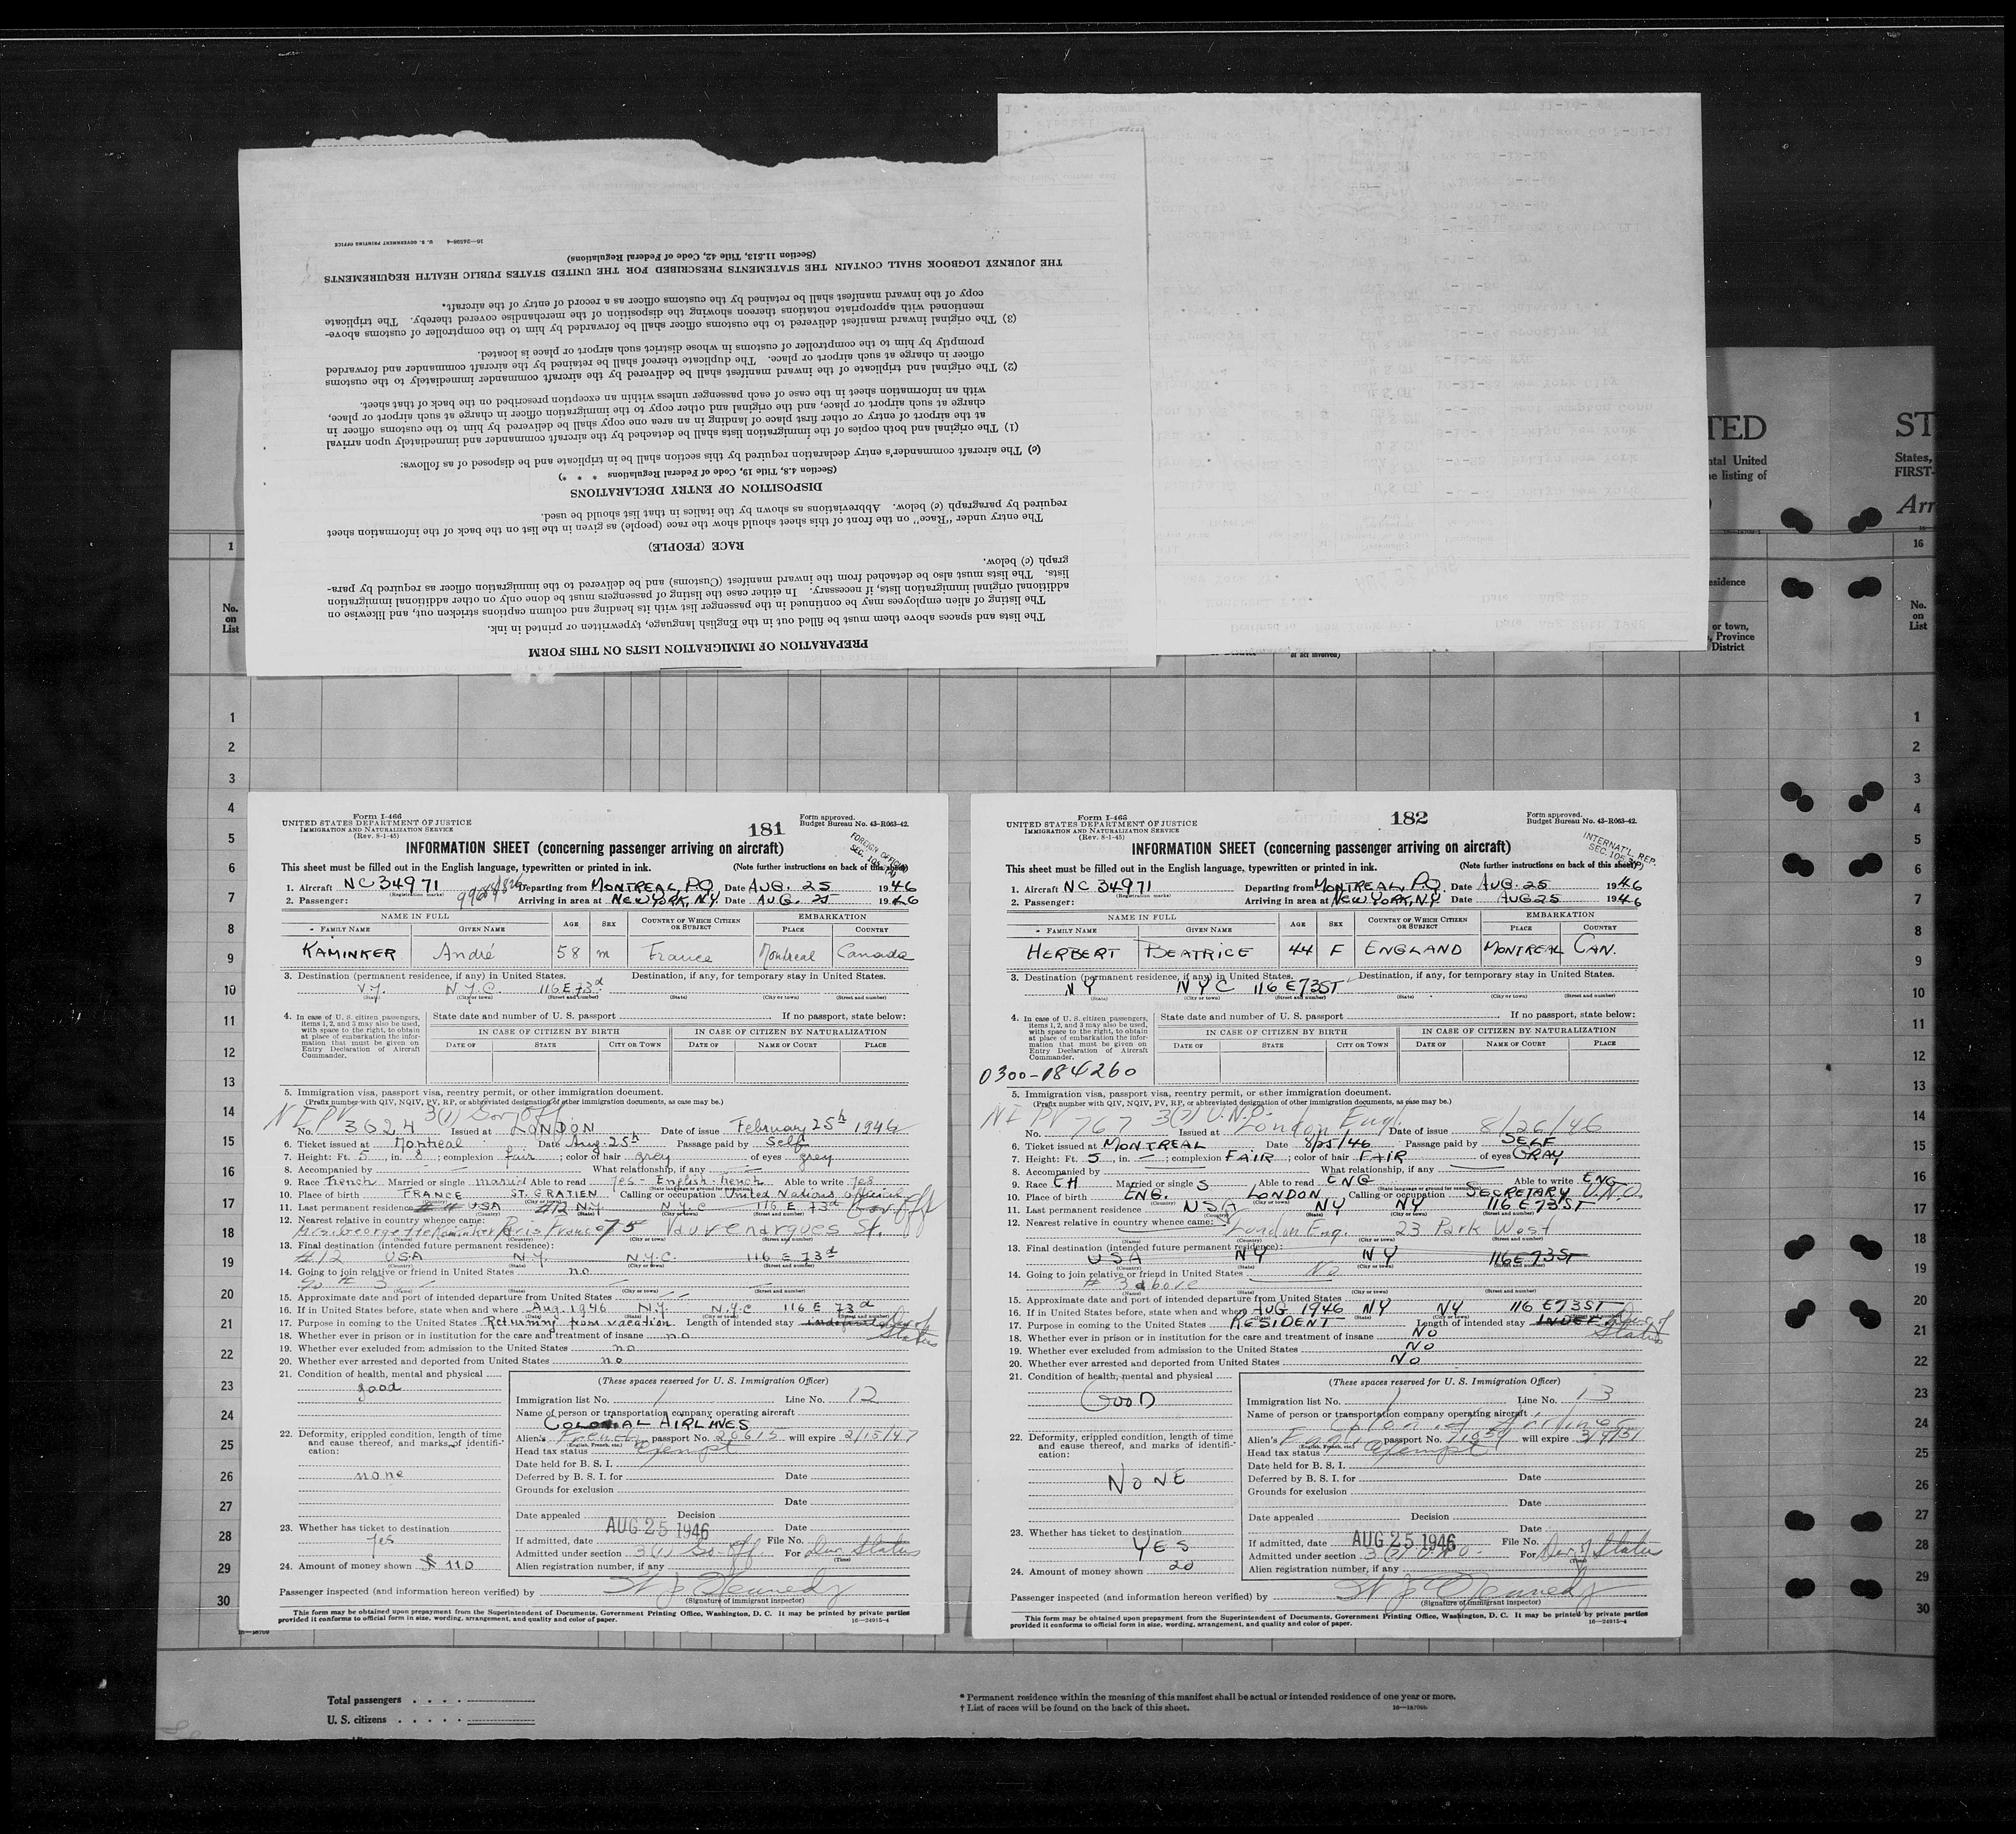 PREPARATION OF IMMIGRATION LISTS ON THIS FORM
The lists and spaces above them must be filled out in the English language, typewritten or printed in ink.
The listing of alien employees may be continued in the passenger list with its heading and column captions stricken out, and likewise on
additional original immigration lists, if necessary. In either case the listing of passengers must be done only on other additional immigration
lists. The lists must also be detached from the inward manifest (Customs) and be delivered to the immigration officer as required by para-
graph (c) below.
RACE (PEOPLE)
The entry under "Race" on the front of this sheet should show the race (people) as given in the list on the back of the information sheet
required by paragraph (c) below. Abbreviations as shown by the italics in that list should be used.
DISPOSITION OF ENTRY DECLARATIONS
(Section 4.8, Title 19, Code of Federal Regulations * * *)
(c) The aircraft commander's entry declaration required by this section shall be in triplicate and be disposed of as follows:
(1) The original and both copies of the immigration lists shall be detached by the aircraft commander and immediately upon arrival
at the airport of entry or other first place of landing in an area one copy shall be delivered by him to the customs officer in
charge at such airport or place, and the original and other copy to the immigration officer in charge at such airport or place,
with an information sheet in the case of each passenger unless within an exception prescribed on the back of that sheet.
(2) The original and triplicate of the inward manifest shall be delivered by the aircraft commander immediately to the customs
officer in charge at such airport or place. The duplicate thereof shall be retained by the aircraft commander and forwarded
promptly by him to the comptroller of customs in whose district such airport or place is located.
(3) The original inward manifest delivered to the customs officer shall be forwarded by him to the comptroller of customs above-
mentioned with appropriate notations thereon showing the disposition of the merchandise covered thereby. The triplicate
copy of the inward manifest shall be retained by the customs officer as a record of entry of the aircraft.
THE JOURNEY LOGBOOK SHALL CONTAIN THE STATEMENTS PRESCRIBED FOR THE UNITED STATES PUBLIC HEALTH REQUIREMENTS
(Section 11.513, Title 42, Code of Federal Regulations)
16—24508-4 U. S. GOVERNMENT PRINTING OFFICE
TED
ntal United
e listing of
ST
States,
FIRST-
Arr
1
16
esidence
No.
on
List
or town,
, Province
District
No.
on
List
1
2
3
4
5
6
7
8
9
10
11
12
13
14
15
16
17
18
19
20
21
22
23
24
25
26
27
28
29
30
Form I-466
UNITED STATES DEPARTMENT OF JUSTICE
IMMIGRATION AND NATURALIZATION SERVICE
(Rev. 8-1-45)
181
Form approved.
Budget Bureau No. 43-R063-42.
FOREIGN OFFICIAL
INFORMATION SHEET (concerning passenger arriving on aircraft)
This sheet must be filled out in the English language, typewritten or printed in ink. (Note further instructions on back of this sheet)
1. Aircraft NC 34971 Departing from MONTREAL, P.Q. Date AUG. 25 1946
(Registration marks)
2. Passenger: Arriving in area at NEW YORK, N.Y. Date AUG. 25 1946
NAME IN FULL AGE SEX COUNTRY OF WHICH CITIZEN OR SUBJECT EMBARKATION
FAMILY NAME GIVEN NAME PLACE COUNTRY
KAMINKER André 58 m France Montreal Canada
3. Destination (permanent residence, if any) in United States. Destination, if any, for temporary stay in United States.
N.Y. N.Y.C. 116 E 73d
(State) (City or town) (Street and number) (State) (City or town) (Street and number)
4. In case of U. S. citizen passengers, items 1, 2, and 3 may also be used, with space to the right, to obtain at place of embarkation the information that must be given on Entry Declaration of Aircraft Commander.
State date and number of U. S. passport If no passport, state below:
IN CASE OF CITIZEN BY BIRTH IN CASE OF CITIZEN BY NATURALIZATION
DATE OF STATE CITY OR TOWN DATE OF NAME OF COURT PLACE
5. Immigration visa, passport visa, reentry permit, or other immigration document.
(Prefix number with QIV, NQIV, PV, RP, or abbreviated designation of other immigration documents, as case may be.)
3(1) Gov Off
No. 3624 Issued at LONDON Date of issue February 25h 1946
6. Ticket issued at Montreal Date Aug. 25h Passage paid by Self
7. Height: Ft. 5, in. 8; complexion fair; color of hair grey of eyes grey
8. Accompanied by What relationship, if any
9. Race French Married or single married Able to read yes - English - French Able to write yes
(State language or ground for exemption)
10. Place of birth FRANCE ST. GRATIEN Calling or occupation United Nations official
11. Last permanent residence USA #12 N.Y. N.Y.C 116 E 73d Gov. Off
(Country) (State) (City or town) (Street and number)
12. Nearest relative in country whence came:
Mrs. George Kaminker Paris France 75 Vauvenargues St.
(Name) (Country) (City or town) (Street and number)
13. Final destination (intended future permanent residence):
USA N.Y. N.Y.C. 116 E 73d
(Country) (State) (City or town) (Street and number)
14. Going to join relative or friend in United States no
(City or town) (Street and number)
15. Approximate date and port of intended departure from United States
16. If in United States before, state when and where Aug. 1946 N.Y. N.Y.C 116 E 73d
17. Purpose in coming to the United States Returning from vacation Length of intended stay Dur of Status
18. Whether ever in prison or in institution for the care and treatment of insane no
19. Whether ever excluded from admission to the United States no
20. Whether ever arrested and deported from United States no
21. Condition of health, mental and physical
good
22. Deformity, crippled condition, length of time and cause thereof, and marks of identification:
none
23. Whether has ticket to destination
yes
24. Amount of money shown $ 110
(These spaces reserved for U. S. Immigration Officer)
Immigration list No. 1 Line No. 12
Name of person or transportation company operating aircraft
COLONIAL AIRLINES
Alien's French passport No. 20615 will expire 2/15/47
(English, French, etc.)
Head tax status Exempt
Date held for B. S. I.
Deferred by B. S. I. for Date
Grounds for exclusion
Date
Date appealed Decision
Date
If admitted, date AUG 25 1946 File No.
Admitted under section 3(1) Go-Off. For Dur Status
(Time)
Alien registration number, if any
Passenger inspected (and information hereon verified) by W J Kennedy
(Signature of immigrant inspector)
This form may be obtained upon prepayment from the Superintendent of Documents, Government Printing Office, Washington, D. C. It may be printed by private parties
provided it conforms to official form in size, wording, arrangement, and quality and color of paper. 16—24915-4
Form I-466
UNITED STATES DEPARTMENT OF JUSTICE
IMMIGRATION AND NATURALIZATION SERVICE
(Rev. 8-1-45)
182
Form approved.
Budget Bureau No. 43-R063-42.
INTERNAT'L. REP.
INFORMATION SHEET (concerning passenger arriving on aircraft)
This sheet must be filled out in the English language, typewritten or printed in ink. (Note further instructions on back of this sheet)
1. Aircraft NC 34971 Departing from MONTREAL, P.Q. Date AUG. 25 1946
(Registration marks)
2. Passenger: Arriving in area at NEW YORK, NY Date AUG 25 1946
NAME IN FULL AGE SEX COUNTRY OF WHICH CITIZEN OR SUBJECT EMBARKATION
FAMILY NAME GIVEN NAME PLACE COUNTRY
HERBERT BEATRICE 44 F ENGLAND MONTREAL CAN.
3. Destination (permanent residence, if any) in United States. Destination, if any, for temporary stay in United States.
NY NYC 116 E 73 ST
(State) (City or town) (Street and number) (State) (City or town) (Street and number)
4. In case of U. S. citizen passengers, items 1, 2, and 3 may also be used, with space to the right, to obtain at place of embarkation the information that must be given on Entry Declaration of Aircraft Commander.
State date and number of U. S. passport If no passport, state below:
IN CASE OF CITIZEN BY BIRTH IN CASE OF CITIZEN BY NATURALIZATION
DATE OF STATE CITY OR TOWN DATE OF NAME OF COURT PLACE
0300-184260
5. Immigration visa, passport visa, reentry permit, or other immigration document.
(Prefix number with QIV, NQIV, PV, RP, or abbreviated designation of other immigration documents, as case may be.)
No. 767 3(7) U.N.O. Issued at London Engl. Date of issue 8/26/46
6. Ticket issued at MONTREAL Date 8/25/46 Passage paid by SELF
7. Height: Ft. 5, in. ; complexion FAIR; color of hair FAIR of eyes GRAY
8. Accompanied by What relationship, if any
9. Race EH Married or single S Able to read ENG Able to write ENG
10. Place of birth ENG. LONDON Calling or occupation SECRETARY U.N.O.
11. Last permanent residence USA NY NY 116 E 73 ST
12. Nearest relative in country whence came: London Eng. 23 Park West
(Name) (Country) (City or town) (Street and number)
13. Final destination (intended future permanent residence):
USA NY NY 116 E 73 ST
(Country) (State) (City or town) (Street and number)
14. Going to join relative or friend in United States No
# 3 above
15. Approximate date and port of intended departure from United States
16. If in United States before, state when and where AUG 1946 NY NY 116 E 73 ST
17. Purpose in coming to the United States RESIDENT Length of intended stay INDEF Dur of Status
18. Whether ever in prison or in institution for the care and treatment of insane NO
19. Whether ever excluded from admission to the United States NO
20. Whether ever arrested and deported from United States NO
21. Condition of health, mental and physical
GOOD
22. Deformity, crippled condition, length of time and cause thereof, and marks of identification:
NONE
23. Whether has ticket to destination
YES
24. Amount of money shown 20
(These spaces reserved for U. S. Immigration Officer)
Immigration list No. 1 Line No. 13
Name of person or transportation company operating aircraft
Colonial Airlines
Alien's passport No. will expire
(English, French, etc.)
Head tax status Exempt
Date held for B. S. I.
Deferred by B. S. I. for Date
Grounds for exclusion
Date
Date appealed Decision
Date
If admitted, date AUG 25 1946 File No.
Admitted under section 3(7) UNO. For Dur of Status
(Time)
Alien registration number, if any
Passenger inspected (and information hereon verified) by W J Kennedy
(Signature of immigrant inspector)
This form may be obtained upon prepayment from the Superintendent of Documents, Government Printing Office, Washington, D. C. It may be printed by private parties
provided it conforms to official form in size, wording, arrangement, and quality and color of paper. 16—24915-4
Total passengers . . . .
U. S. citizens . . . . .
* Permanent residence within the meaning of this manifest shall be actual or intended residence of one year or more.
† List of races will be found on the back of this sheet.